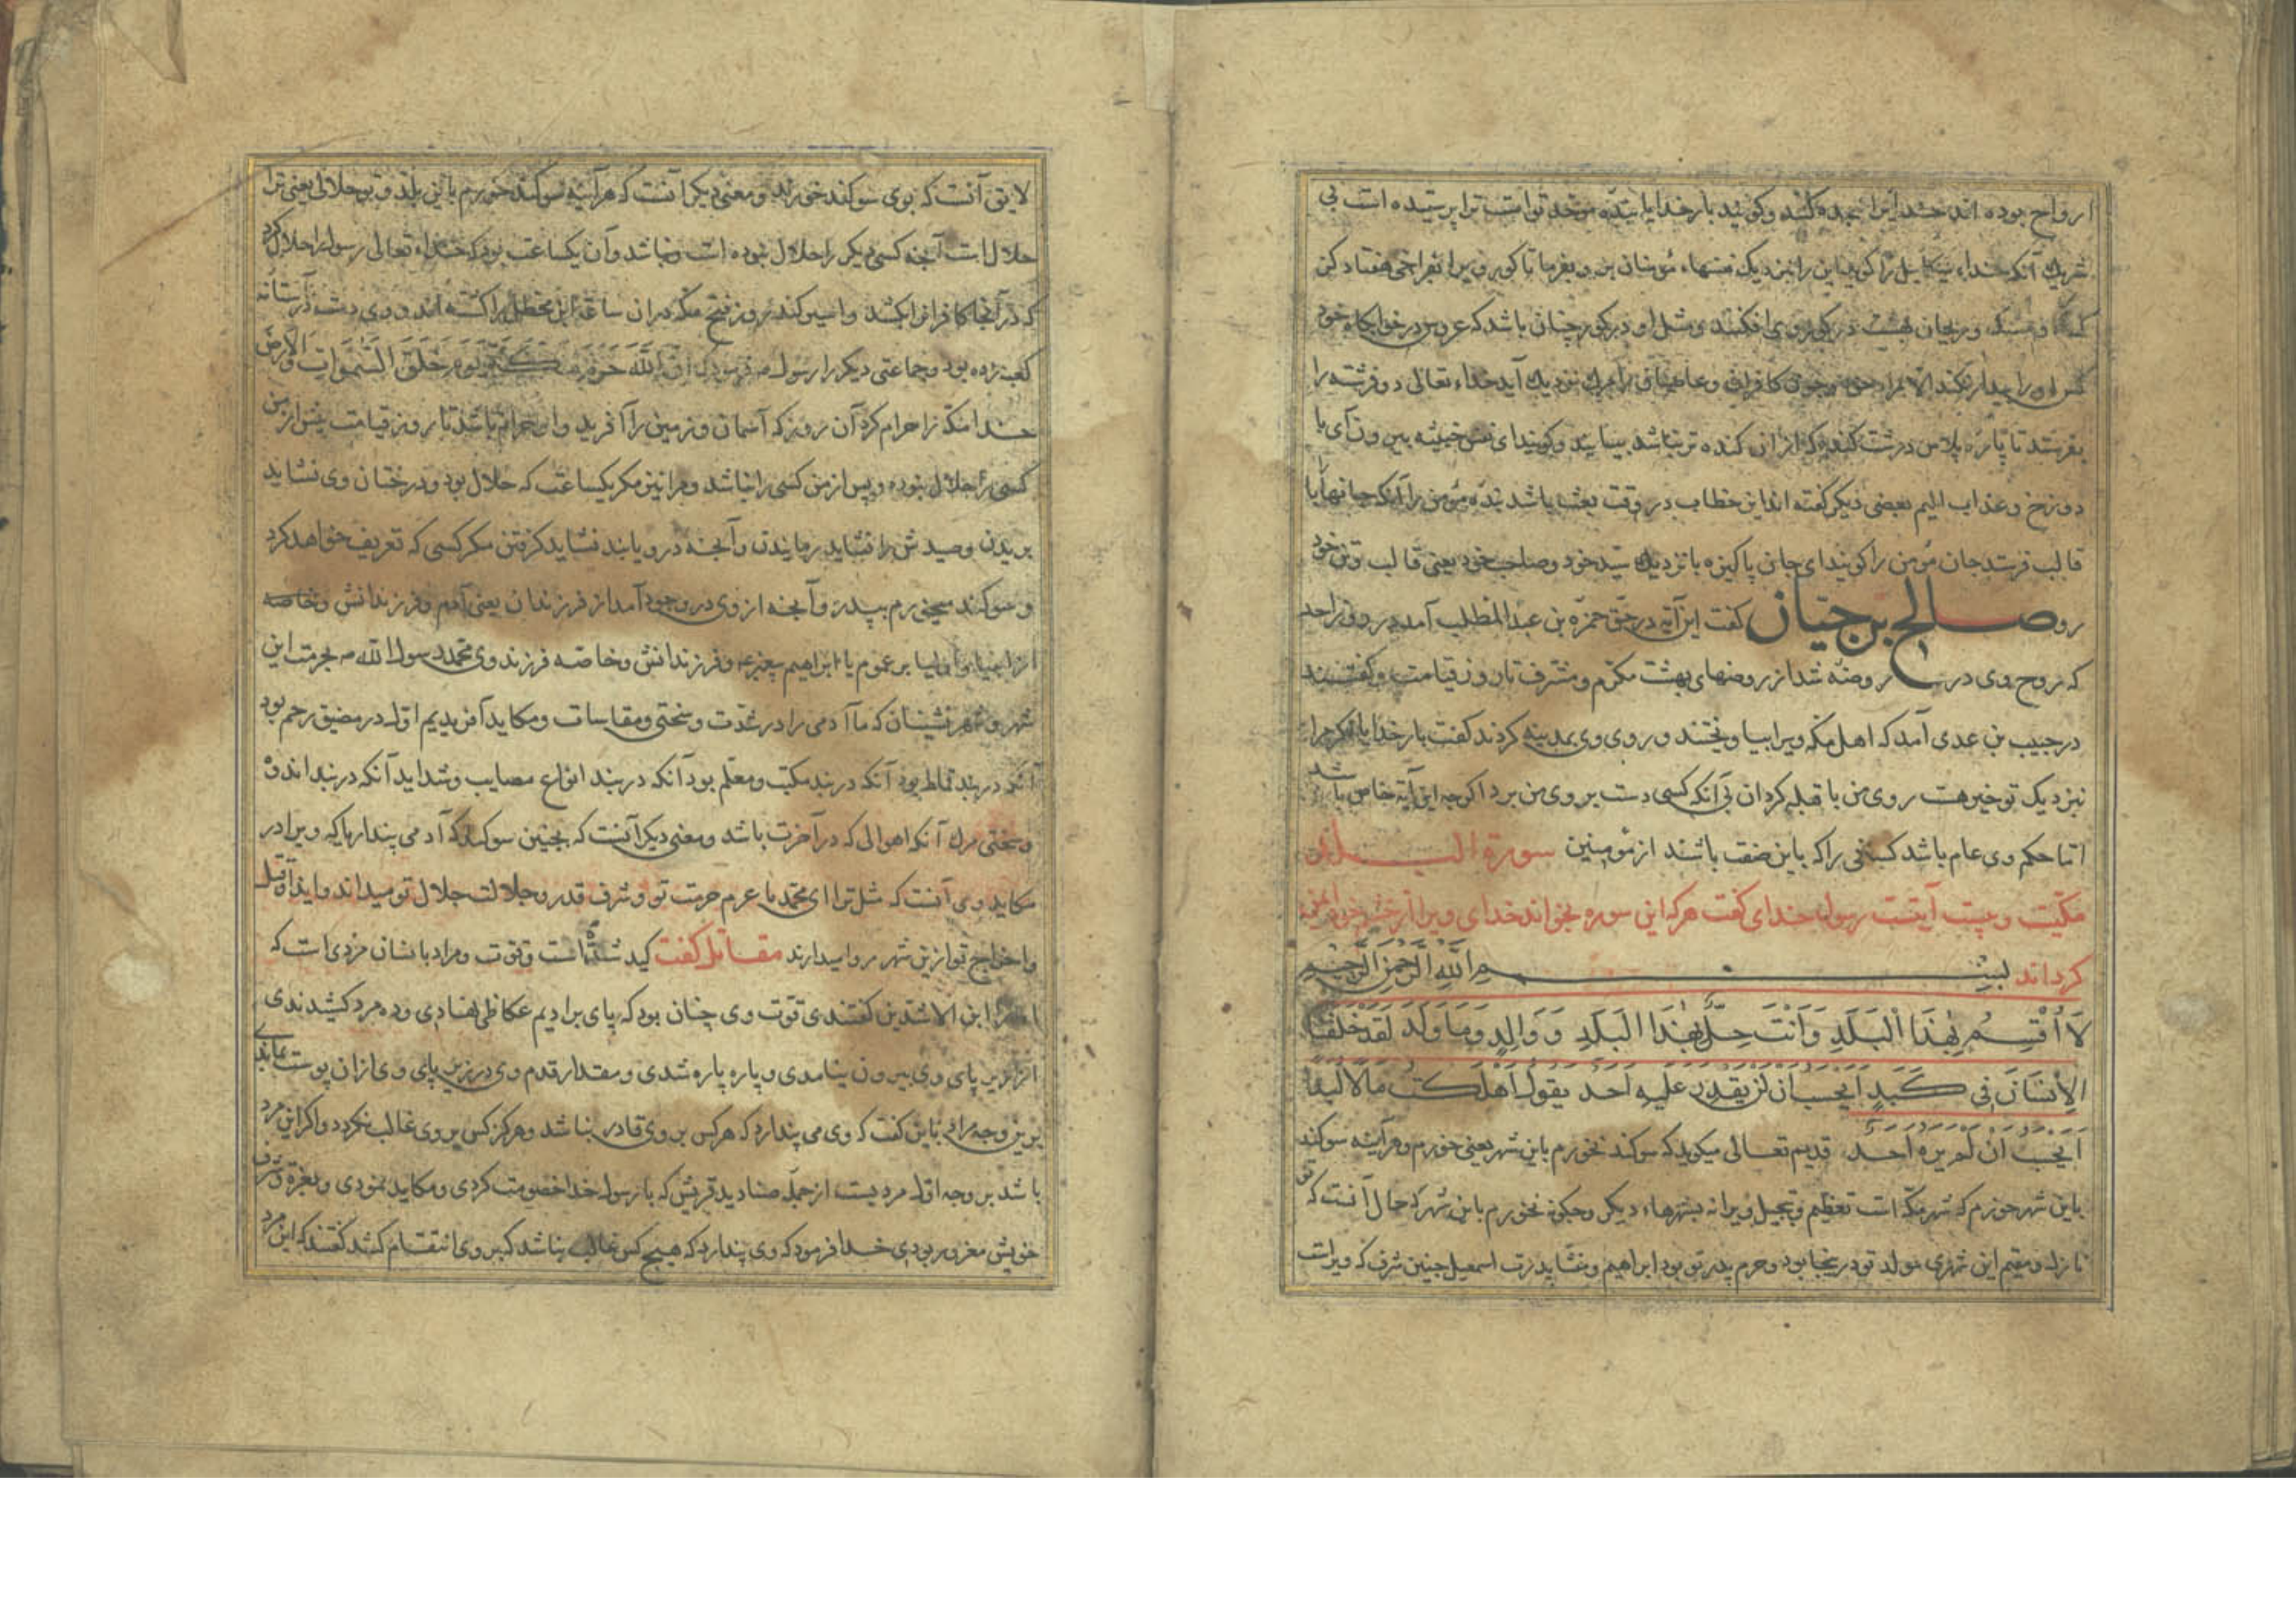 ارواح بوده اند خدایرا سجده کنند و کویند بار خدایا بنده موحد توامت ترا پرستیده است بی
شریک آنکه خداء میکاییل را کوید این را بنزدیک نفسهاء مؤمنان بر و بفرما تا کور ویرا بفراخی هفتاد کز
کنند و ریحان بهشت در کور وی افکنند و مثل او در کور چنان باشد که عروس در خوابکاه خود
کس او را بیدار نکند الا بمراد خود و چون کافر و عاصی را مرک نزدیک آید خداء تعالی دو فرشته را
بفرستد تا پاره پلاس درشت کنده که از ان کنده تر نباشد بیایند و کویند ای نفس خبیثه بیرون آی با
دوزخ و عذاب الیم بعضی دیکر کفته اند این خطاب در وقت بعث باشد بنده مؤمن را آنکه جانها با
قالب فرستد جان مؤمن را کویند ای جان پاکیزه با نزدیک سید خود و صاحب خود یعنی قالب و تن خود
رو صالح بن حیان کفت این آیه در حق حمزه بن عبد المطلب آمد در روز احد
که روح وی در روضه شد از روضهای بهشت مکرم و مشرف تا روز قیامت و کفتند
در حبیب بن عدی آمد که اهل مکه ویرا بیاویختند و روی وی بمدینه کردند کفت بار خدایا اکر مرا
بنزدیک تو خیر هست روی من با قبله کردان بی آنکه کسی دست بر روی من برد اکرچه این آیه خاص باشد
اما حکم وی عام باشد کسانی را که باین صفت باشند از مؤمنین سورة البلد
مکیت و بیست آیتست رسول خدای کفت هرکه این سوره بخواند خدای ویرا از خشم خود ایمن
کرداند بسم الله الرحمن الرحیم
لَا أُقْسِمُ بِهَذَا الْبَلَدِ وَأَنْتَ حِلٌّ بِهَذَا الْبَلَدِ وَوَالِدٍ وَمَا وَلَدَ لَقَدْ خَلَقْنَا
الْإِنْسَانَ فِي كَبَدٍ أَيَحْسَبُ أَنْ لَنْ يَقْدِرَ عَلَيْهِ أَحَدٌ يَقُولُ أَهْلَكْتُ مَالًا لُبَدًا
أَيَحْسَبُ أَنْ لَمْ يَرَهُ أَحَدٌ قدیم تعالی میکوید که سوکند نخورم باین شهر یعنی خورم و هرآینه سوکند
باین شهر خورم که شهر مکه است تعظیم و تبجیل ویرا نه بشهرهاء دیکر و چکونه نخورم باین شهر که حال آنست که تو
نازل و مقیم این شهری مولد تو در ینجا بود و حرم پدر تو بود ابراهیم و منشا پدرت اسمعیل چنین شرف که ویراست
لایق آنست که بوی سوکند خورند و معنی دیکر آنست که هرآینه سوکند خورم باین بلد و تو حلالی یعنی ترا
حلال است آنچه کسی دیکر را حلال نبوده است و نباشد و آن یکساعت بود که خداء تعالی رسول را حلال کرد
که در آنجا کافرانرا بکشد و اسیر کند روز فتح مکه دران ساعه ابن خطل را کشته اند و وی دست در آستانه
کعبه زده بود و جماعتی دیکر را رسول فرمود که ان الله حرم مکة یوم خلق السموات والارض
خدا مکه را حرام کرد آن روز که آسمان و زمین را آفرید و او حرام باشد تا روز قیامت پیش از من
کسی را حلال نبوده و پس از من کسی را نباشد و مرا نیز مکر یکساعت که حلال بود و درختان وی نشاید
بریدن و صیدش را نشاید رمانیدن و آنچه درو یابند نشاید کرفتن مکر کسی که تعریف خواهد کرد
و سوکند میخورم بپدر و آنچه از وی در وجود آمد از فرزندان یعنی آدم و فرزندانش و خاصه
از انبیا و اولیا بر عموم یا ابراهیم پیغمبر و فرزندانش و خاصه فرزند وی محمد رسول الله بحرمت این
شهر و شهر نشینان که ما آدمی را در شدت و سختی و مقاسات و مکاید آفریدیم اول در مضیق رحم بود
آنکه در بند قماط بود آنکه در بند مکتب و معلم بود آنکه در بند انواع مصایب و شداید آنکه در بند اندوه
و سختی مرك آنکه اهوالی که در آخرت باشد و معنی دیکر آنست که بچنین سوکند که آدمی پندارد که ویرا در
مکاید وی آنست که مثل ترا ای محمد با عزم حرمت تو و شرف قدر و جلالت حلال تو میداند و ایذاء قتل
و اخراج تو ازین شهر روا میدارند مقاتل کفت کبد شدة است و قوت و مراد بانسان مردی است که
ابن الاشدین کفتندی قوت وی چنان بود که پای بر ادیم عکاظی نهادی و ده مرد کشیدندی
از زیر پای وی بیرون نیامدی و پاره پاره شدی و مقدار قدم وی در زیر پای وی ازان پوست بماندی
برین وجه مراد باین کفت که وی می پندارد که هرکس بر وی قادر نباشد و هرکز کس بر وی غالب نکردد و اکر این مرد
باشد بر وجه اول مردیست از جمله صنادید قریش که با رسول خدا خصومت کردی و مکاید نمودی و بعزه و شرف
خویش مغرور بودی خدا فرمود که وی پندارد که هیچ کس غالب نباشد که بر وی انتقام کشد کفتند که این مرد